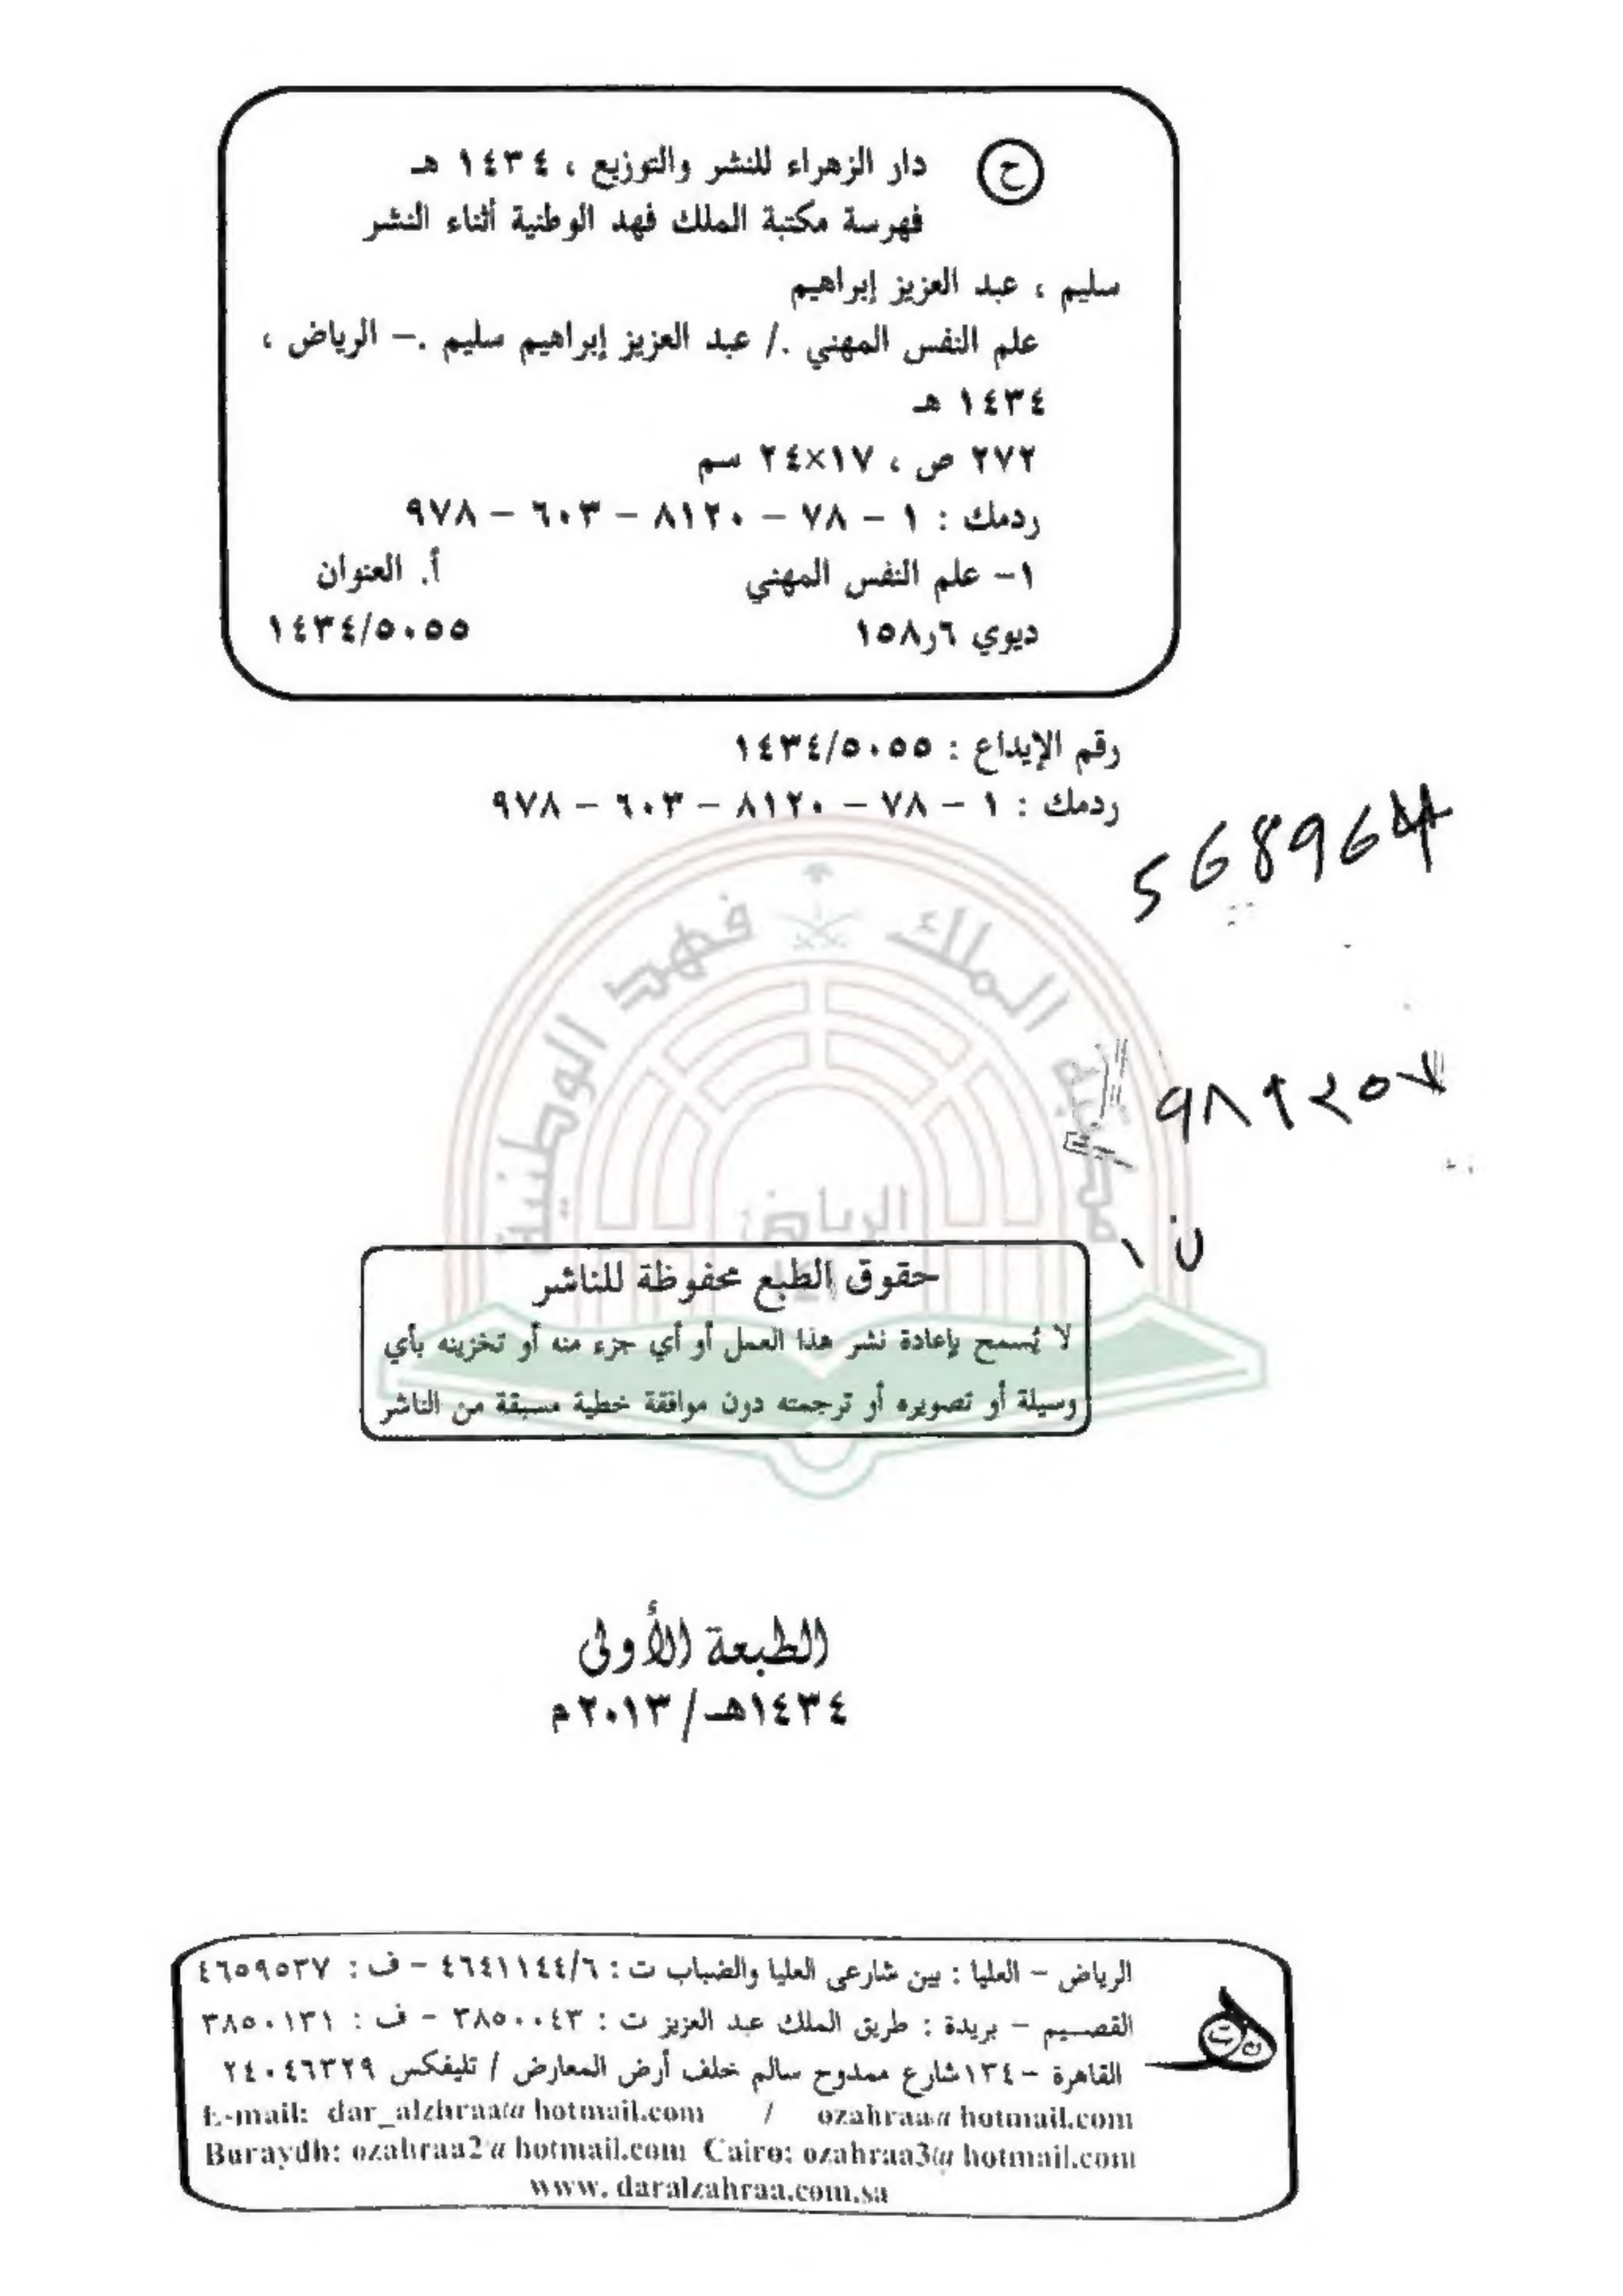 ح
دار الزهراء للنشر والتوزيع ، ١٤٣٤ هـ
فهرسة مكتبة الملك فهد الوطنية أثناء النشر
سليم ، عبد العزيز إبراهيم
علم النفس المهني ./ عبد العزيز إبراهيم سليم .– الرياض ،
١٤٣٤ هـ
٢٧٢ ص ، ١٧×٢٤ سم
ردمك : ١ – ٧٨ – ٨١٢٠ – ٦٠٣ – ٩٧٨
١– علم النفس المهني أ. العنوان
ديوي ١٥٨٫٦ ١٤٣٤/٥٠٥٥
رقم الإيداع : ١٤٣٤/٥٠٥٥
ردمك : ١ – ٧٨ – ٨١٢٠ – ٦٠٣ – ٩٧٨
مكتبة الملك فهد الوطنية
الرياض
ن ١
حقوق الطبع محفوظة للناشر
لا يُسمح بإعادة نشر هذا العمل أو أي جزء منه أو تخزينه بأي
وسيلة أو تصويره أو ترجمته دون موافقة خطية مسبقة من الناشر
الطبعة الأولى
١٤٣٤هـ/٢٠١٣م
الرياض – العليا : بين شارعى العليا والضباب ت : ٤٦٤١١٤٤/٦ – ف : ٤٦٥٩٥٣٧
القصيم – بريدة : طريق الملك عبد العزيز ت : ٣٨٥٠٠٤٣ – ف : ٣٨٥٠١٣١
القاهرة –١٣٤شارع ممدوح سالم خلف أرض المعارض / تليفكس ٢٤٠٤٦٣٢٩
E-mail: dar_alzhraa@hotmail.com / ozahraa@hotmail.com
Buraydh: ozahraa2@hotmail.com Cairo: ozahraa3@hotmail.com
www.daralzahraa.com.sa